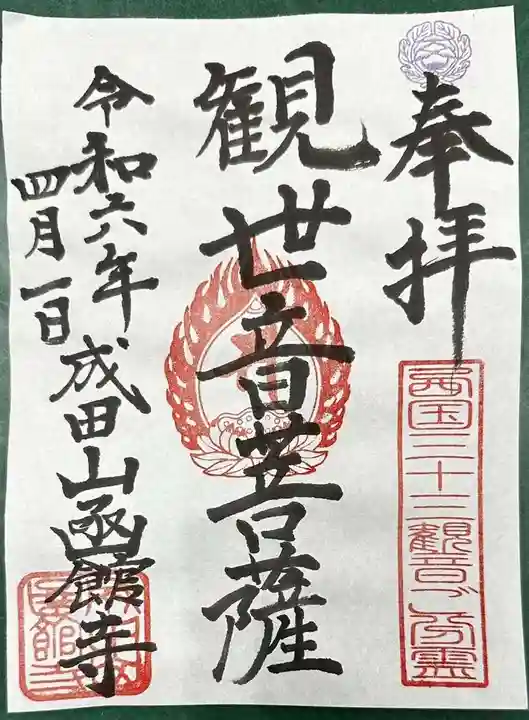 奉拝
西国三十三観音ご分霊
観世音菩薩
令和六年
四月一日
成田山函館寺